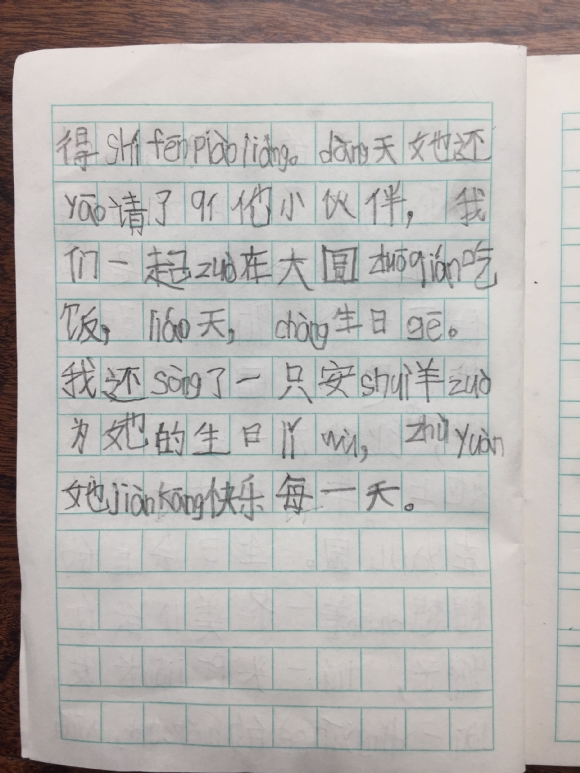 得shí fēn piào liàng。dāng天她还
yāo请了qí他小伙伴，我
们一起zuò在大圆zhuō qián吃
饭，liáo天，chàng生日gē。
我还sòng了一只安shuì羊zuò
为她的生日lǐ wù，zhù yuàn
她jiàn kāng快乐每一天。